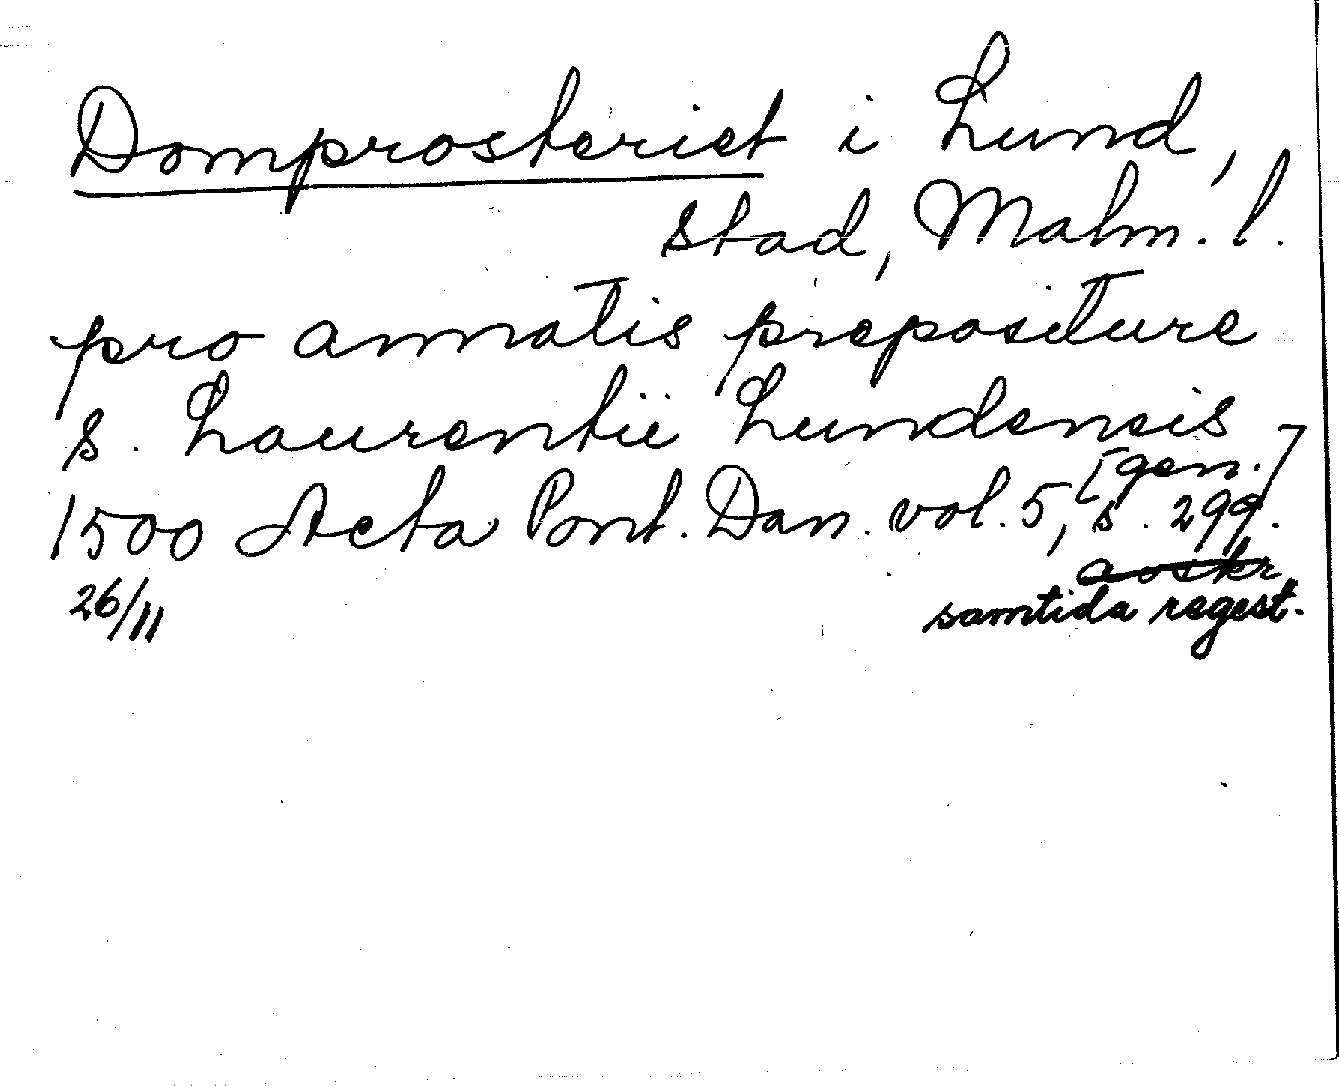 Domprosteriet i Lund,
stad, Malm. l.
pro annatis prepositure
s. Laurentii Lundensis
[gen.]
1500 Acta Pont. Dan. vol. 5, s. 299.
avskr
26/11
samtida regest.